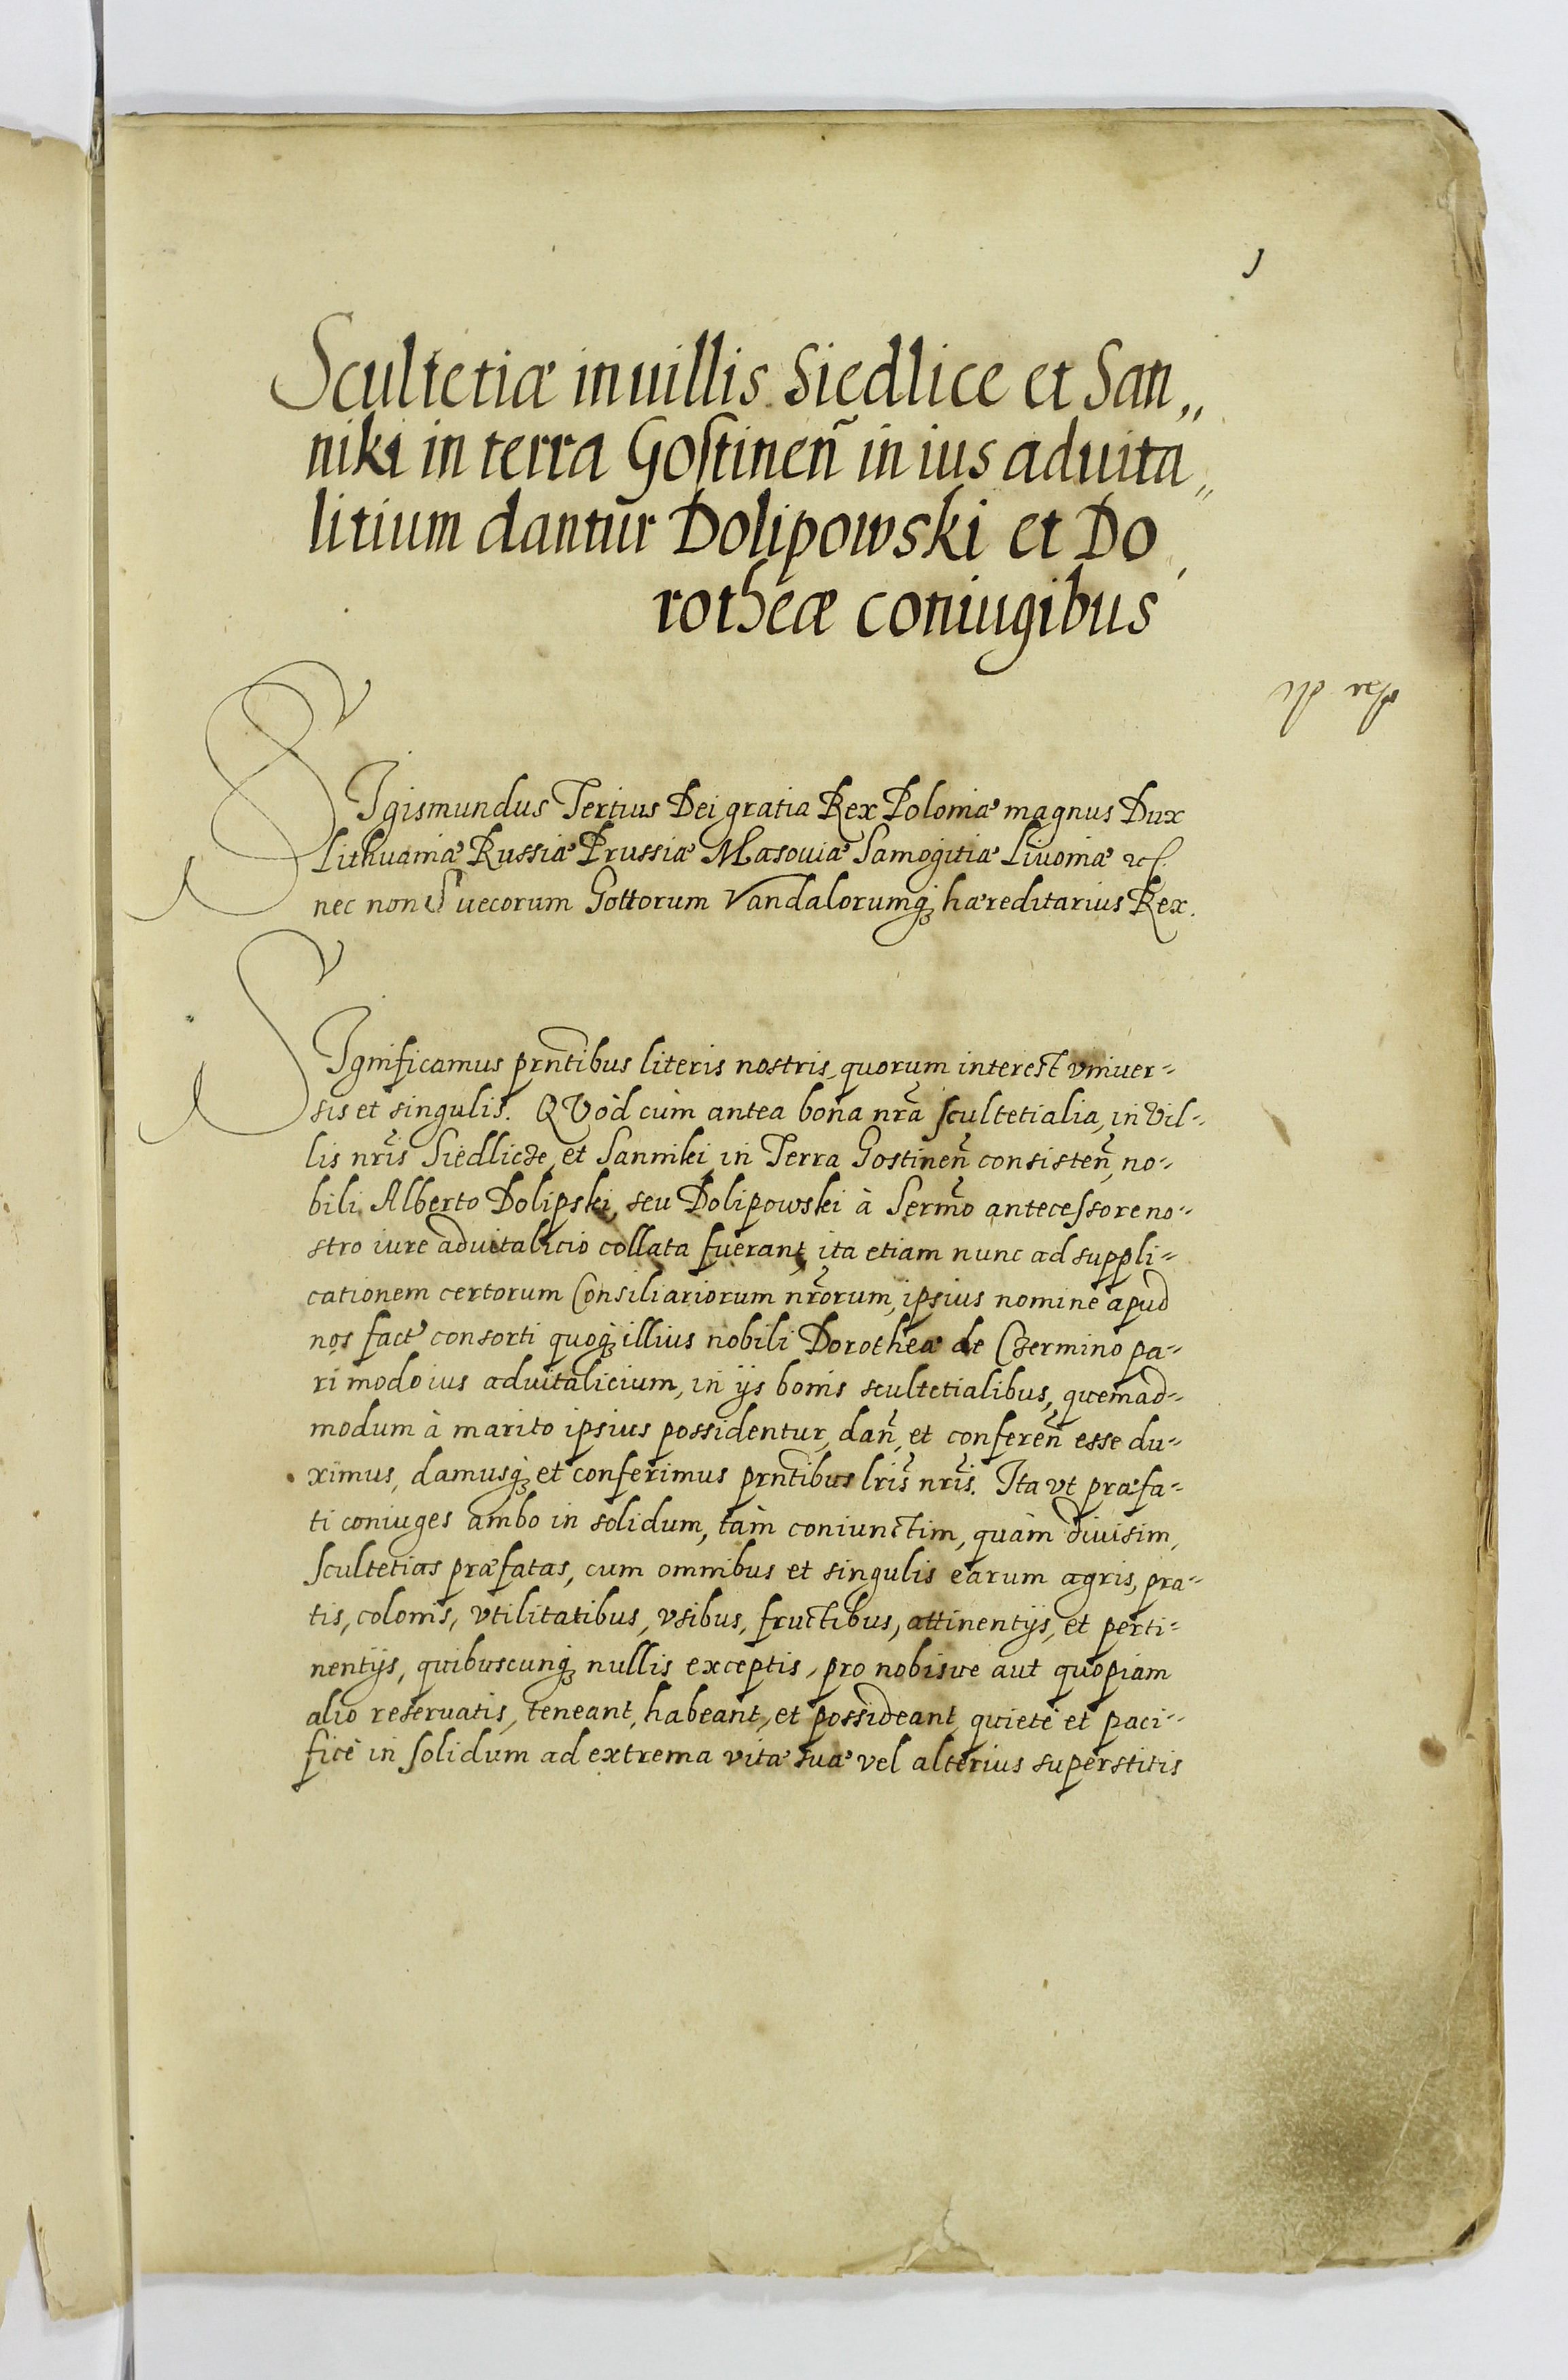 1
Scultetiæ in uillis Siedlice et San„
niki in terra Gostineñ in ius aduita„
litium dantur Dolipowski et Do,
rotheæ coniugibus
SIgismundus Tertius Dei gratia Rex Poloniæ magnus Dux
Lithuaniæ Russiæ Prussiæ Masouiæ Samogitiæ Liuoniæ etc.
nec non Suecorum Gottorum Vandalorumq₃ hæreditarius Rex.
SIgnificamus prñtibus literis nostris, quorum interest vniuer=
sis et singulis. QVòd cùm antea bona nr̃a scultetialia, in Vil=
lis nr̃is Siedlicze, et Sanniki, in Terra Gostineñ consisteñ, no=
bili Alberto Dolipski, seu Dolipowski à Serm̃o antecessore no=
stro iure aduitalicio collata fuerant, ita etiam nunc ad suppli=
cationem certorum Consiliariorum nr̃orum, ipsius nomine apud
nos fact' consorti quoq₃ illius nobili Dorotheæ de Czermino pa=
ri modo ius aduitalicium, in ijs bonis scultetialibus, quemad=
modum à marito ipsius possidentur, dañ, et confereñ esse du=
ximus, damusq₃ et conferimus prñtibus lr̃is nr̃is. Ita vt præfa=
ti coniuges ambo in solidum, tàm coniunctim, quàm diuisim,
scultetias præfatas, cum omnibus et singulis earum agris, pra=
tis, colonis, vtilitatibus, vsibus, fructibus, attinentijs, et perti=
nentijs, quibuscunq₃ nullis exceptis, pro nobisue aut quopiam
alio reseruatis, teneant, habeant, et possideant, quietè et paci=
ficè in solidum ad extrema vitæ suæ vel alterius superstitis